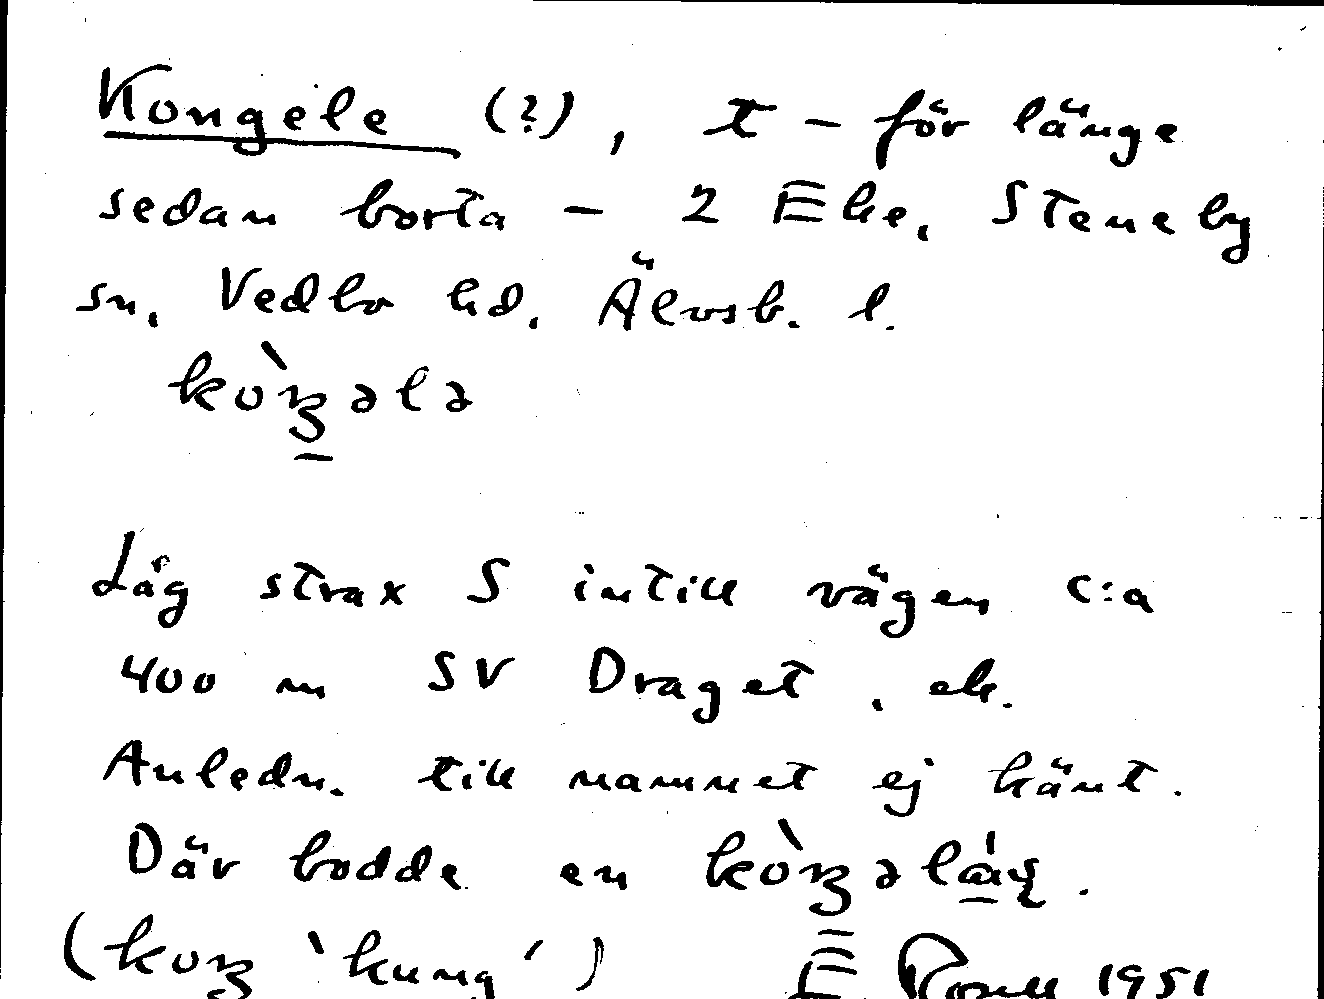 Kongele (?), t – för länge
sedan borta – 2 Ehe, Steneby
sn, Vedbo hd, Älvsb. l.
kòŋələ
Låg strax S intill vägen c:a
400 m SV Draget, eh.
Anledn. till namnet ej känt.
Där bodde en
(koŋ 'kung')
E 1951